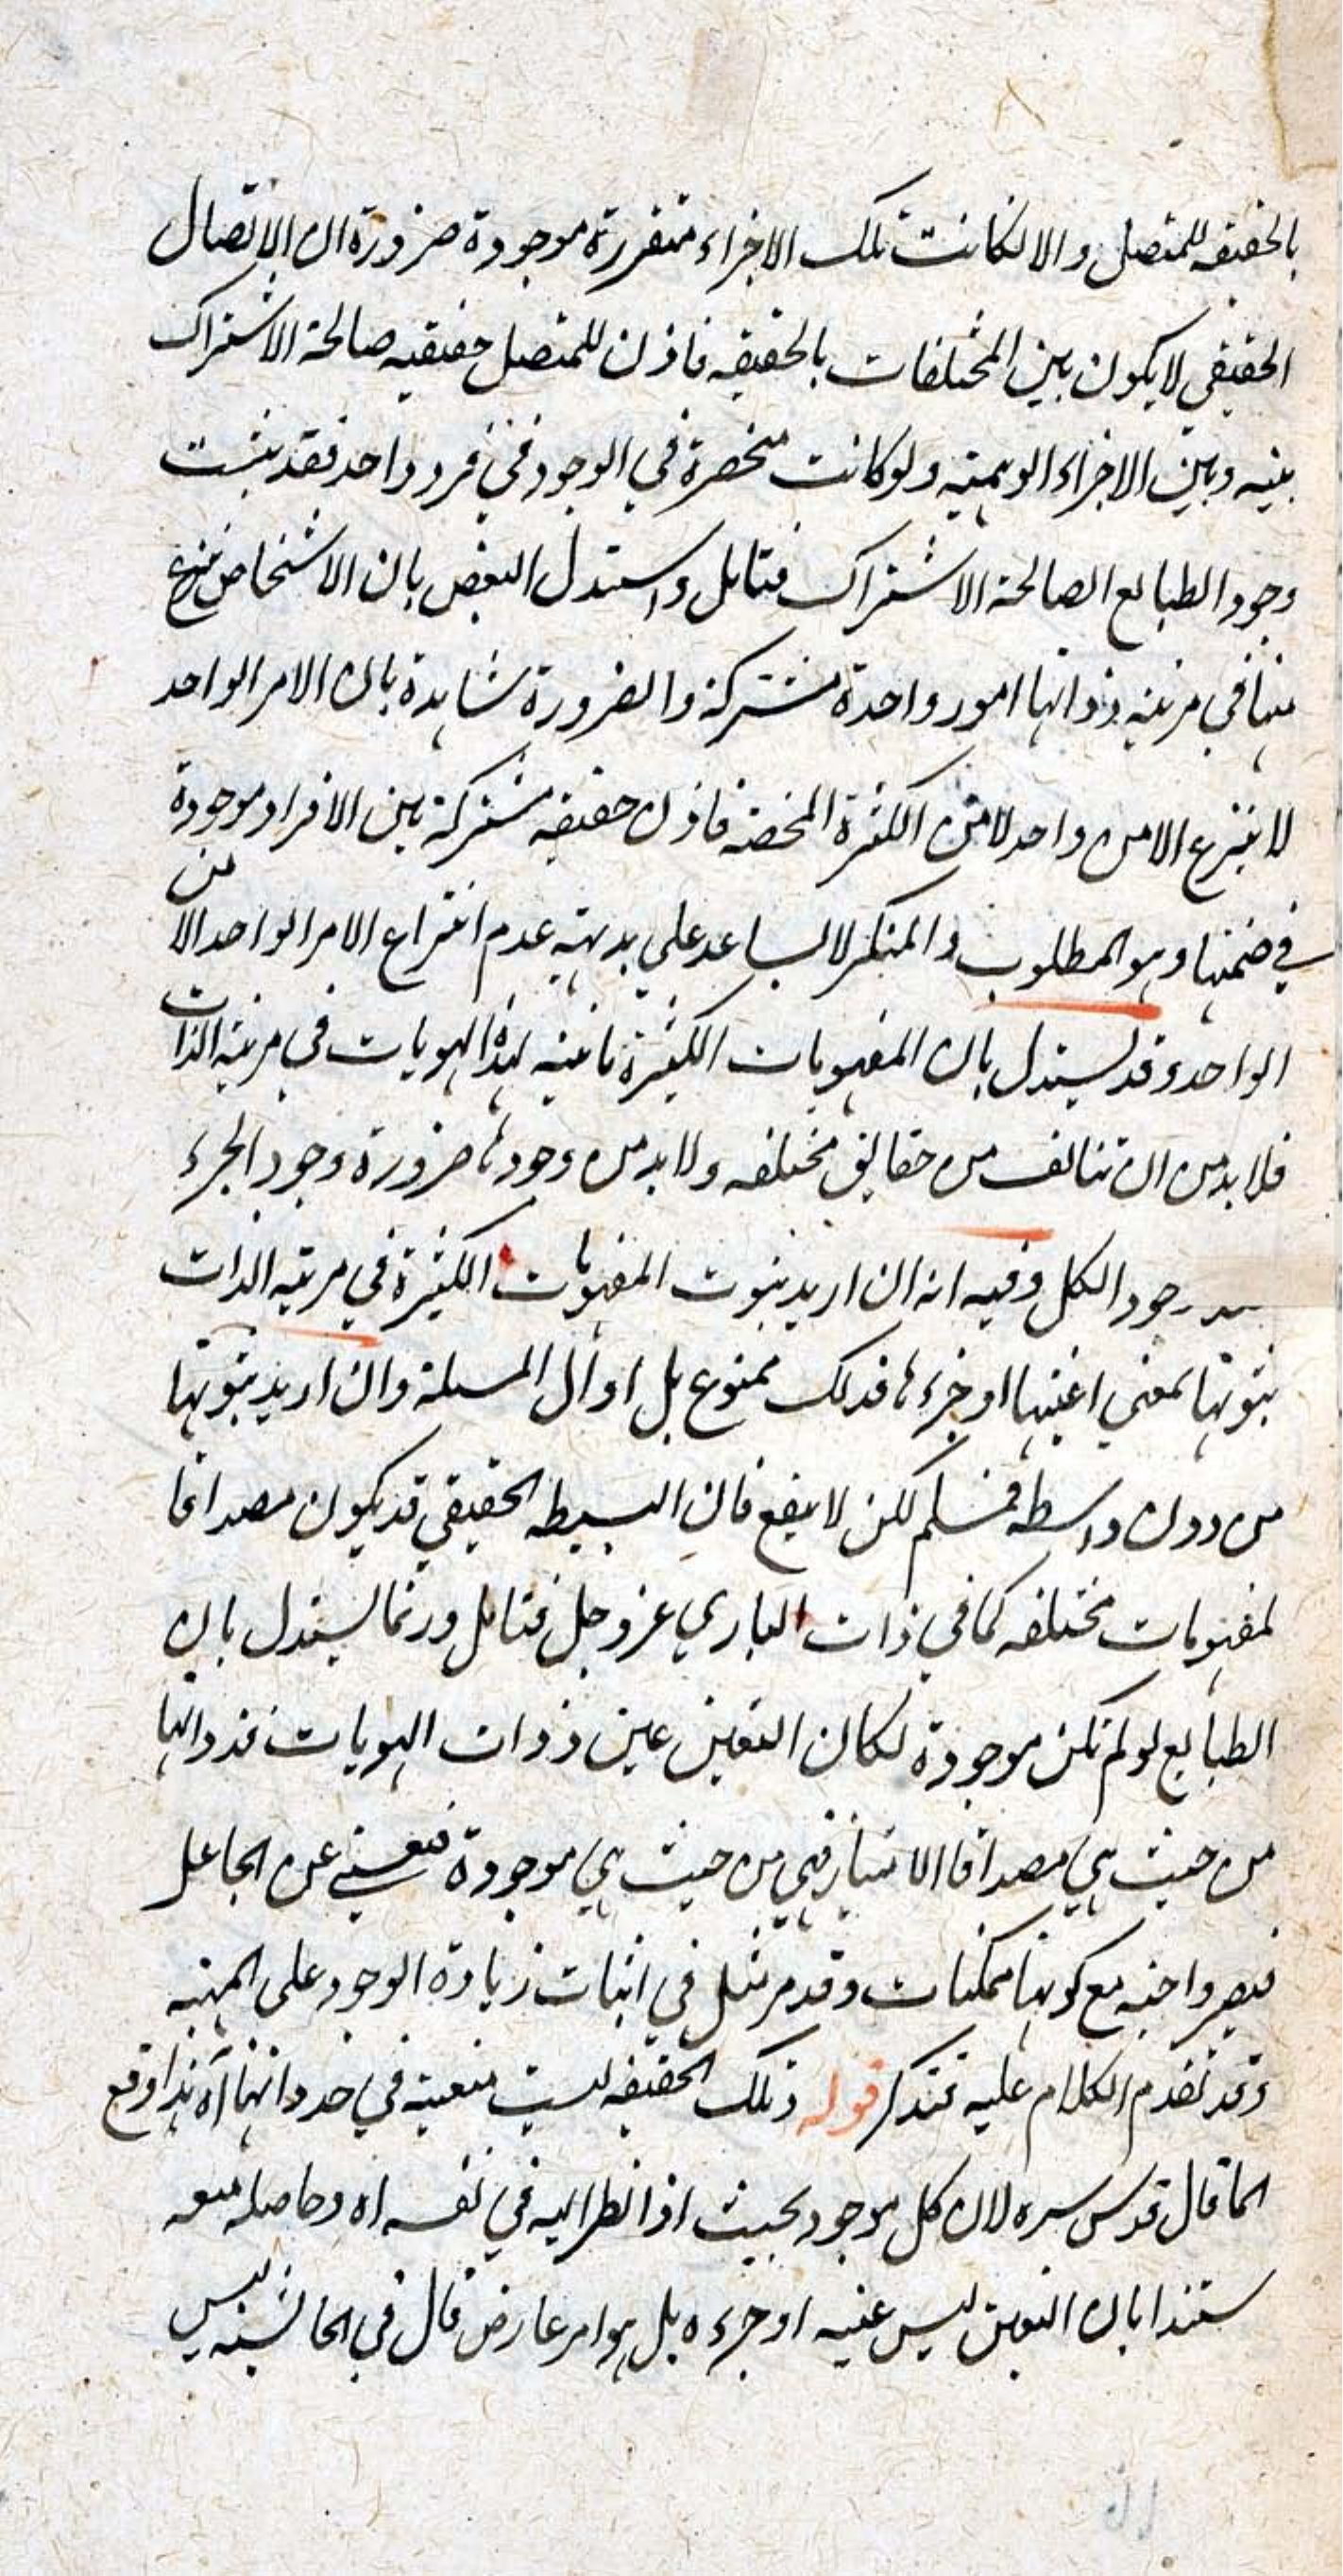 بالحقيقه للمتصل والا لكانت تلك الاجزاء متقررة موجودة ضرورة ان الاتصال
الحقيقي لا يكون بين المختلفات بالحقيقه فاذن للمتصل حقيقيه صالحة الاشتراك
بينه وبين الاجزاء الوهميته ولو كانت منحصرة في الوجود في فرد واحد فقد يثبت
وجود الطبايع الصالحة الاشتراك فتامل واستدل البعض بان الاشخاص ينتزع
منها في مرتبه ذواتها امور واحدة مشتركة والضرورة شاهدة بان الامر الواحد
لا ينتزع الا من واحد لا من الكثرة المحضه فاذن حقيقه مشتركة بين الافراد موجودة
في ضمنها وهو المطلوب والمنكر لا يساعد علي بديهته عدم انتزاع الامر الواحد الا من
الواحد وقد يستدل بان المفهومات الكثيرة ثابته لهذه الهويات في مرتبه الذات
فلا بد من ان تتالف من حقايق مختلفه ولا بد من وجودها ضرورة وجود الجزء
وجود الكل وفيه انه ان اريد بثبوت المفهومات الكثيرة في مرتبه الذات
ثبوتها بمعني اعينها او جزءها فذلك ممنوع بل اوال المسئلة وان اريد ثبوتها
من دون واسطه فمسلم لكن لا ينفع فان البسيطه الحقيقي قد يكون مصداقا
لمفهومات مختلفه كما في ذات الباري عز وجل فتامل وربما يستدل بان
الطبايع لو لم تكن موجودة لكان التعين عين ذوات الهويات فذواتها
من حيث هي مصداقا الامتياز فهي من حيث هي موجودة فتغني عن الجاعل
فيصير واجبه مع كونها ممكنات وقد مر مثل في اثبات زيادة الوجود علي المهيته
وقد تقدم الكلام عليه فتذكر قوله وتلك الحقيقه ليست متعينه في حد ذاتها آه هذا وقع
لما قال قدس سره لان كل موجود بحيث اذا نظر اليه في نفسه اه وحاصله منعه
ستندا بان التعين ليس عينه او جزءه بل هو امر عارض قال في الحاشيه ليس